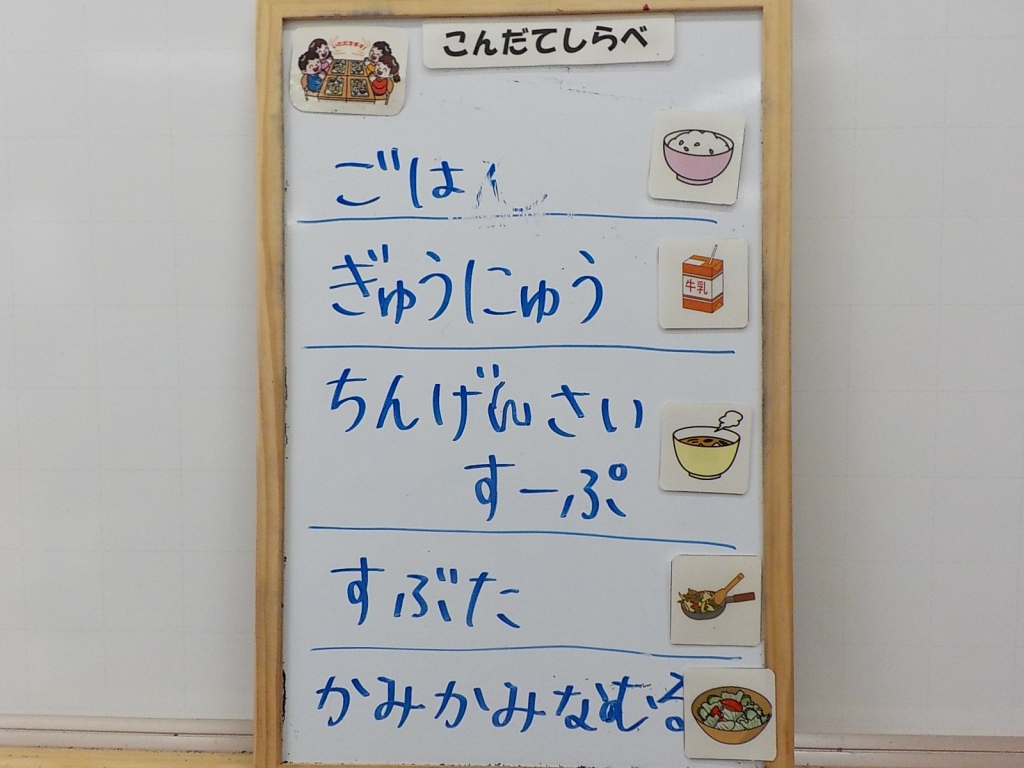 いただきます!
こんだてしらべ
ごはん
ぎゅうにゅう
牛乳
ちんげんさい
すーぷ
すぶた
かみかみなむる